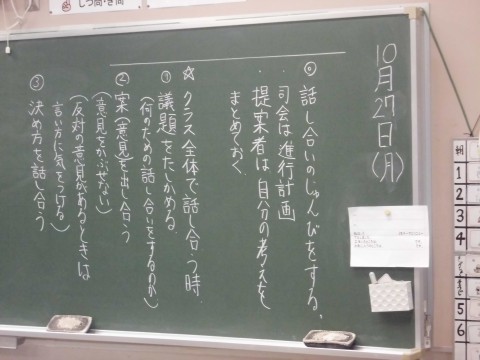 しつ問・き問
10月27日(月)
◎ 話し合いのじゅんびをする。
・司会は進行計画
・提案者は自分の考えを
まとめておく。
☆ クラス全体で話し合う時.
① 議題をたしかめる
(何のための話し合いをするのか)
② 案(意見)を出し合う
(意見をかぶせない)
(反対の意見があるときは
言い方に気をつける)
③ 決め方を話し合う
朝
1
2
3
4
5
6